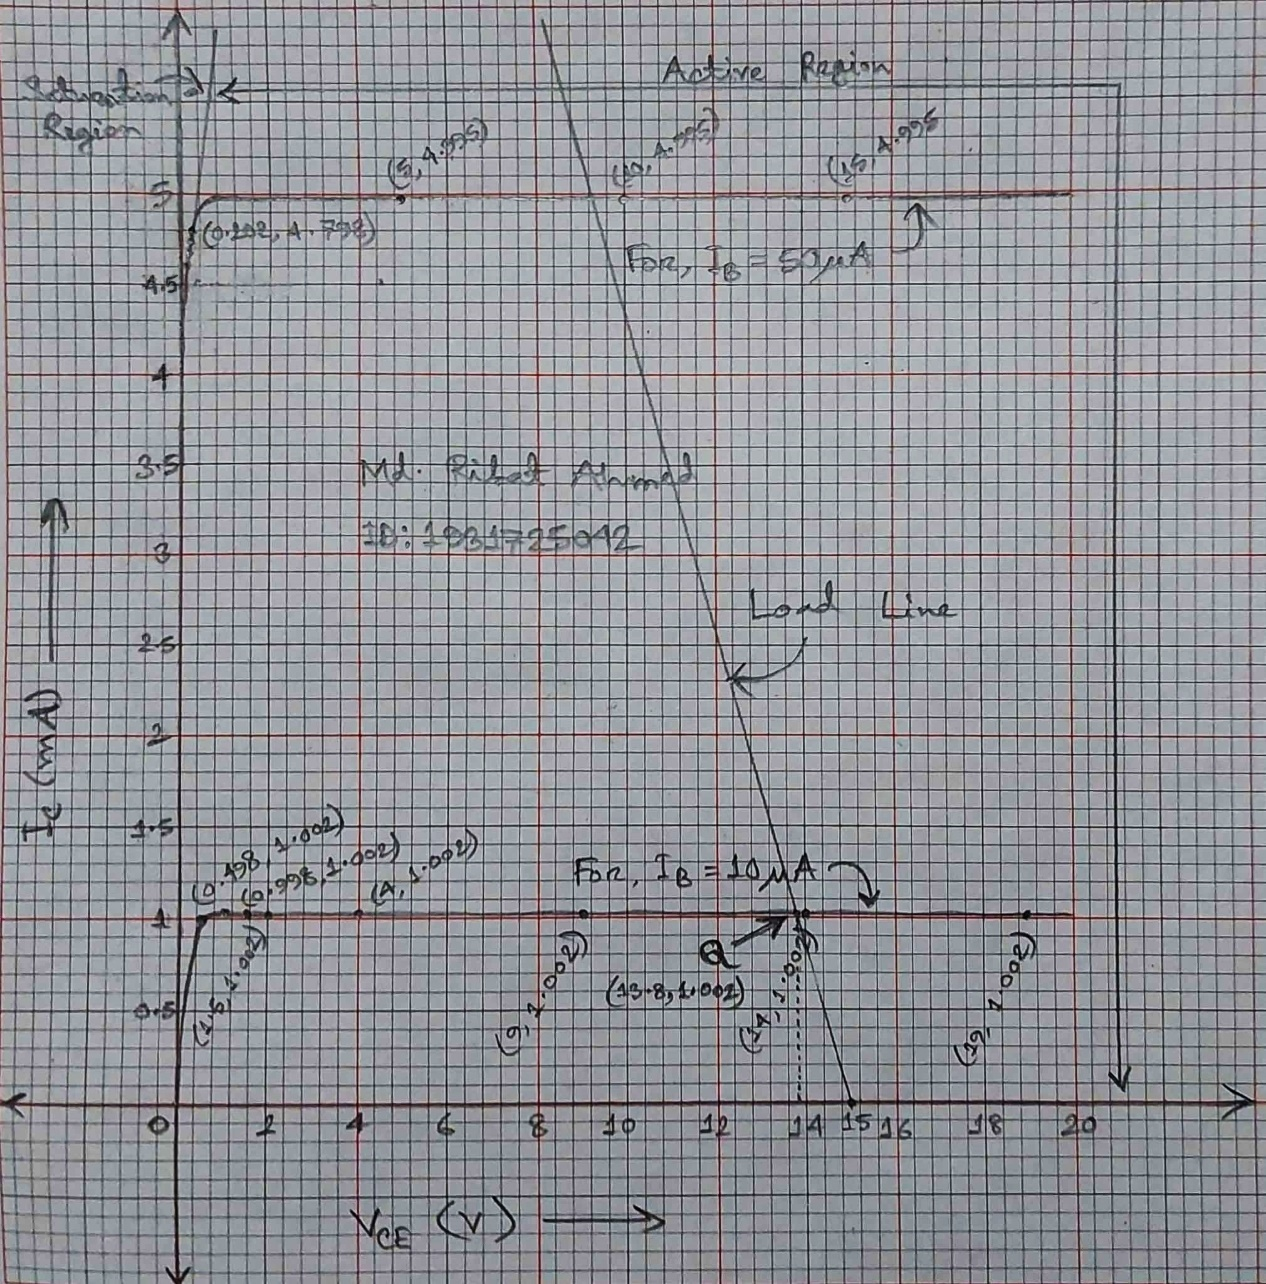 Active Region
Saturation
Region
(5, 4.995)
(10, 4.995)
(15, 4.995
5
(0.202, 4.798)
For, IB = 50μA
4.5
4
3.5
Md. Rifat Ahmed
ID: 1831725042
3
Load Line
2.5
2
Ic (mA)
1.5
(0.498, 1.002)
(0.998, 1.002)
(4, 1.002)
For, IB = 10μA
1
Q
(13.8, 1.002)
(1.5, 1.002)
(9, 1.002)
(14, 1.002)
(19, 1.002)
0.5
0 2 4 6 8 10 12 14 15 16 18 20
VCE (V)